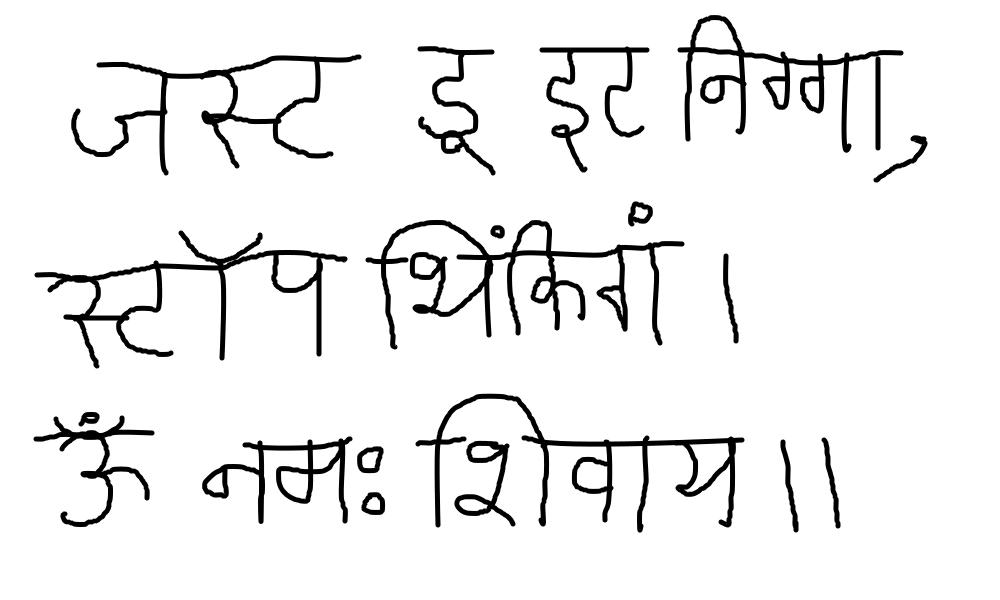 जस्ट डू इट निग्गा,
स्टॉप थिंकिगं ।
ऊँ नमः शिवाय ।।